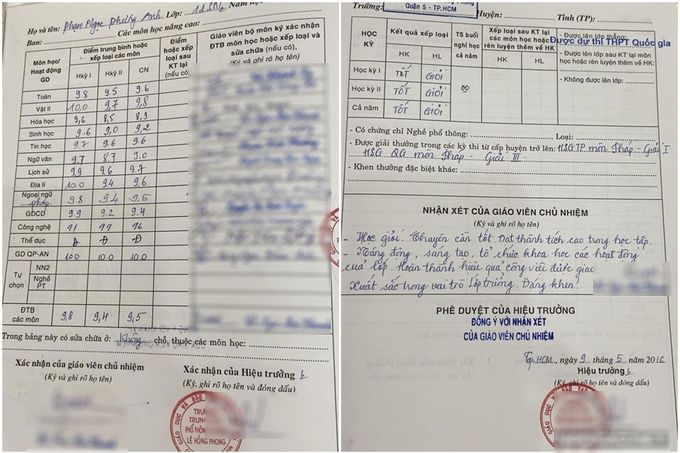 Họ và tên: Phạm Ngọc Phương Anh Lớp:
Ban: Các môn học nâng cao:
Môn học/ Hoạt động GD
Điểm trung bình hoặc xếp loại các môn
Hkỳ I Hkỳ II CN
Điểm hoặc xếp loại sau KT lại (nếu có)
Giáo viên bộ môn ký xác nhận ĐTB môn học hoặc xếp loại và sửa chữa (nếu có),
(Ký và ghi rõ họ tên)
Toán 9.8 9.5 9.6
Vật lí 10,0 9,7 9,8
Hóa học 9,6 8,5 8,9
Sinh học 9.6 9,0 9,2
Tin học 9,7 9,6 9,6
Ngữ văn 9,7 8,7 9.0
Lịch sử 9,9 9,6 9,7
Địa lí 10.0 9.4 9.6
Ngoại ngữ Pháp 9.8 9.4 9.5
GDCD 9,9 9,2 9.4
Công nghệ
Thể dục Đ Đ Đ
GD QP-AN 10.0 10.0 10.0
Tự chọn
NN2
Nghề PT
ĐTB các môn 9,8 9,4 9,5
Trong bảng này có sửa chữa ở: Không chỗ, thuộc các môn học:
Xác nhận của giáo viên chủ nhiệm
(Ký và ghi rõ họ tên)
Xác nhận của Hiệu trưởng
(Ký, ghi rõ họ tên và đóng dấu)
LÊ HỒNG PHONG
Trường:
Quận 5 - TP.HCM
Huyện: Tỉnh (TP):
HỌC KỲ
Kết quả xếp loại
HK HL
TS buổi nghỉ học cả năm
Xếp loại sau KT lại các môn học hoặc rèn luyện thêm về HK
HK HL
Được dự thi THPT Quốc gia
- Được lên lớp thẳng:
- Không được lên lớp:
Học kỳ I TỐT GIỎI
Học kỳ II TỐT GIỎI
Cả năm TỐT GIỎI
- Có chứng chỉ Nghề phổ thông: Loại:
- Được giải thưởng trong các kỳ thi từ cấp huyện trở lên: HSG TP môn Pháp - Giải I
HSG QG môn Pháp - Giải III
- Khen thưởng đặc biệt khác:
NHẬN XÉT CỦA GIÁO VIÊN CHỦ NHIỆM
(Ký và ghi rõ họ tên)
- Học giỏi. Chuyên cần tốt. Đạt thành tích cao trong học tập.
- Năng động, sáng tạo, tổ chức khoa học các hoạt động
của lớp. Hoàn thành hiệu quả công việc được giao
Xuất sắc trong vai trò lớp trưởng. Đáng khen!
PHÊ DUYỆT CỦA HIỆU TRƯỞNG
ĐỒNG Ý VỚI NHẬN XÉT
CỦA GIÁO VIÊN CHỦ NHIỆM
Tp.HCM, ngày 9 tháng 5 năm 2016
Hiệu trưởng
(Ký, ghi rõ họ tên và đóng dấu)